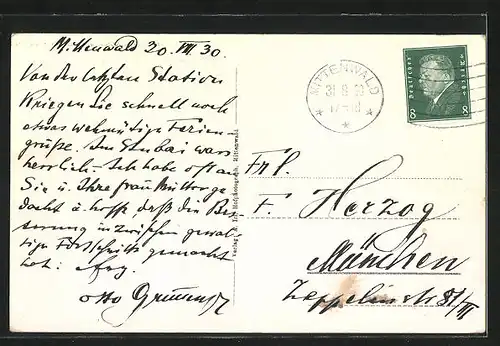 Mittenwald 20. VIII. 30.
Von der letzten Station
kriegen Sie schnell noch
etwas wehmütige Ferien-
grüße. Im Stubai war's
herrlich. Ich habe oft an
Sie u. Ihre Frau Mutter ge-
dacht u. hoffe, daß die Bes-
serung inzwischen gewal-
tige Fortschritte gemacht
hat.
Otto
MITTENWALD
8 Deutsches Reich 8
Frl.
F. Herzog
München
Zeppelinstr 81/III